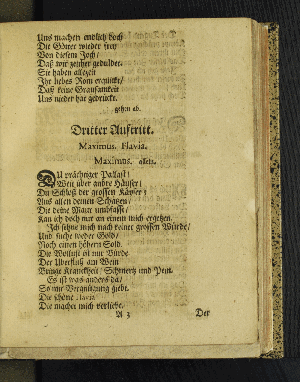 Uns machen endlich doch
Die Götter wieder frey
Von diesem Joch/
Daß wir zeither geduldet.
Sie haben allezeit
Ihr liebes Rom erquickt/
Daß keine Grausamkeit
Uns nieder hat gedrückt.
gehen ab.
Dritter Auftritt.
Maximus. Flavia.
Maximus. allein.
DU prächtiger Pallast/
Weit über andre Häuser/
Du Schloß der grossen Käyser/
Aus allen deinen Schätzen/
Die deine Maur umbfasst/
Kan ich doch nur an einem mich ergetzen.
Ich sehne mich nach keiner grossen Würde/
Und suche weder Gold/
Noch einen höhern Sold.
Die Wollust ist nur Bürde
Der Uberfluß am Wein
Bringt Kranckheit/ Schmertz und Pein.
Es ist was anders da/
So mir Vergnügung giebt.
Die schöne Flavia
Die machet mich verliebt.
A 3 Der